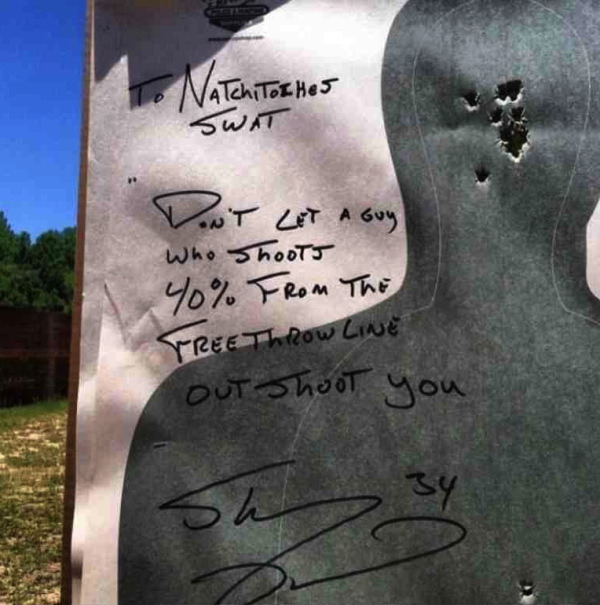 To NATchiTocHes
SWAT
"DoN'T LET A Guy
Who ShooTS
40% FRom The
FREEThRowLINE
OUTShooT you
34